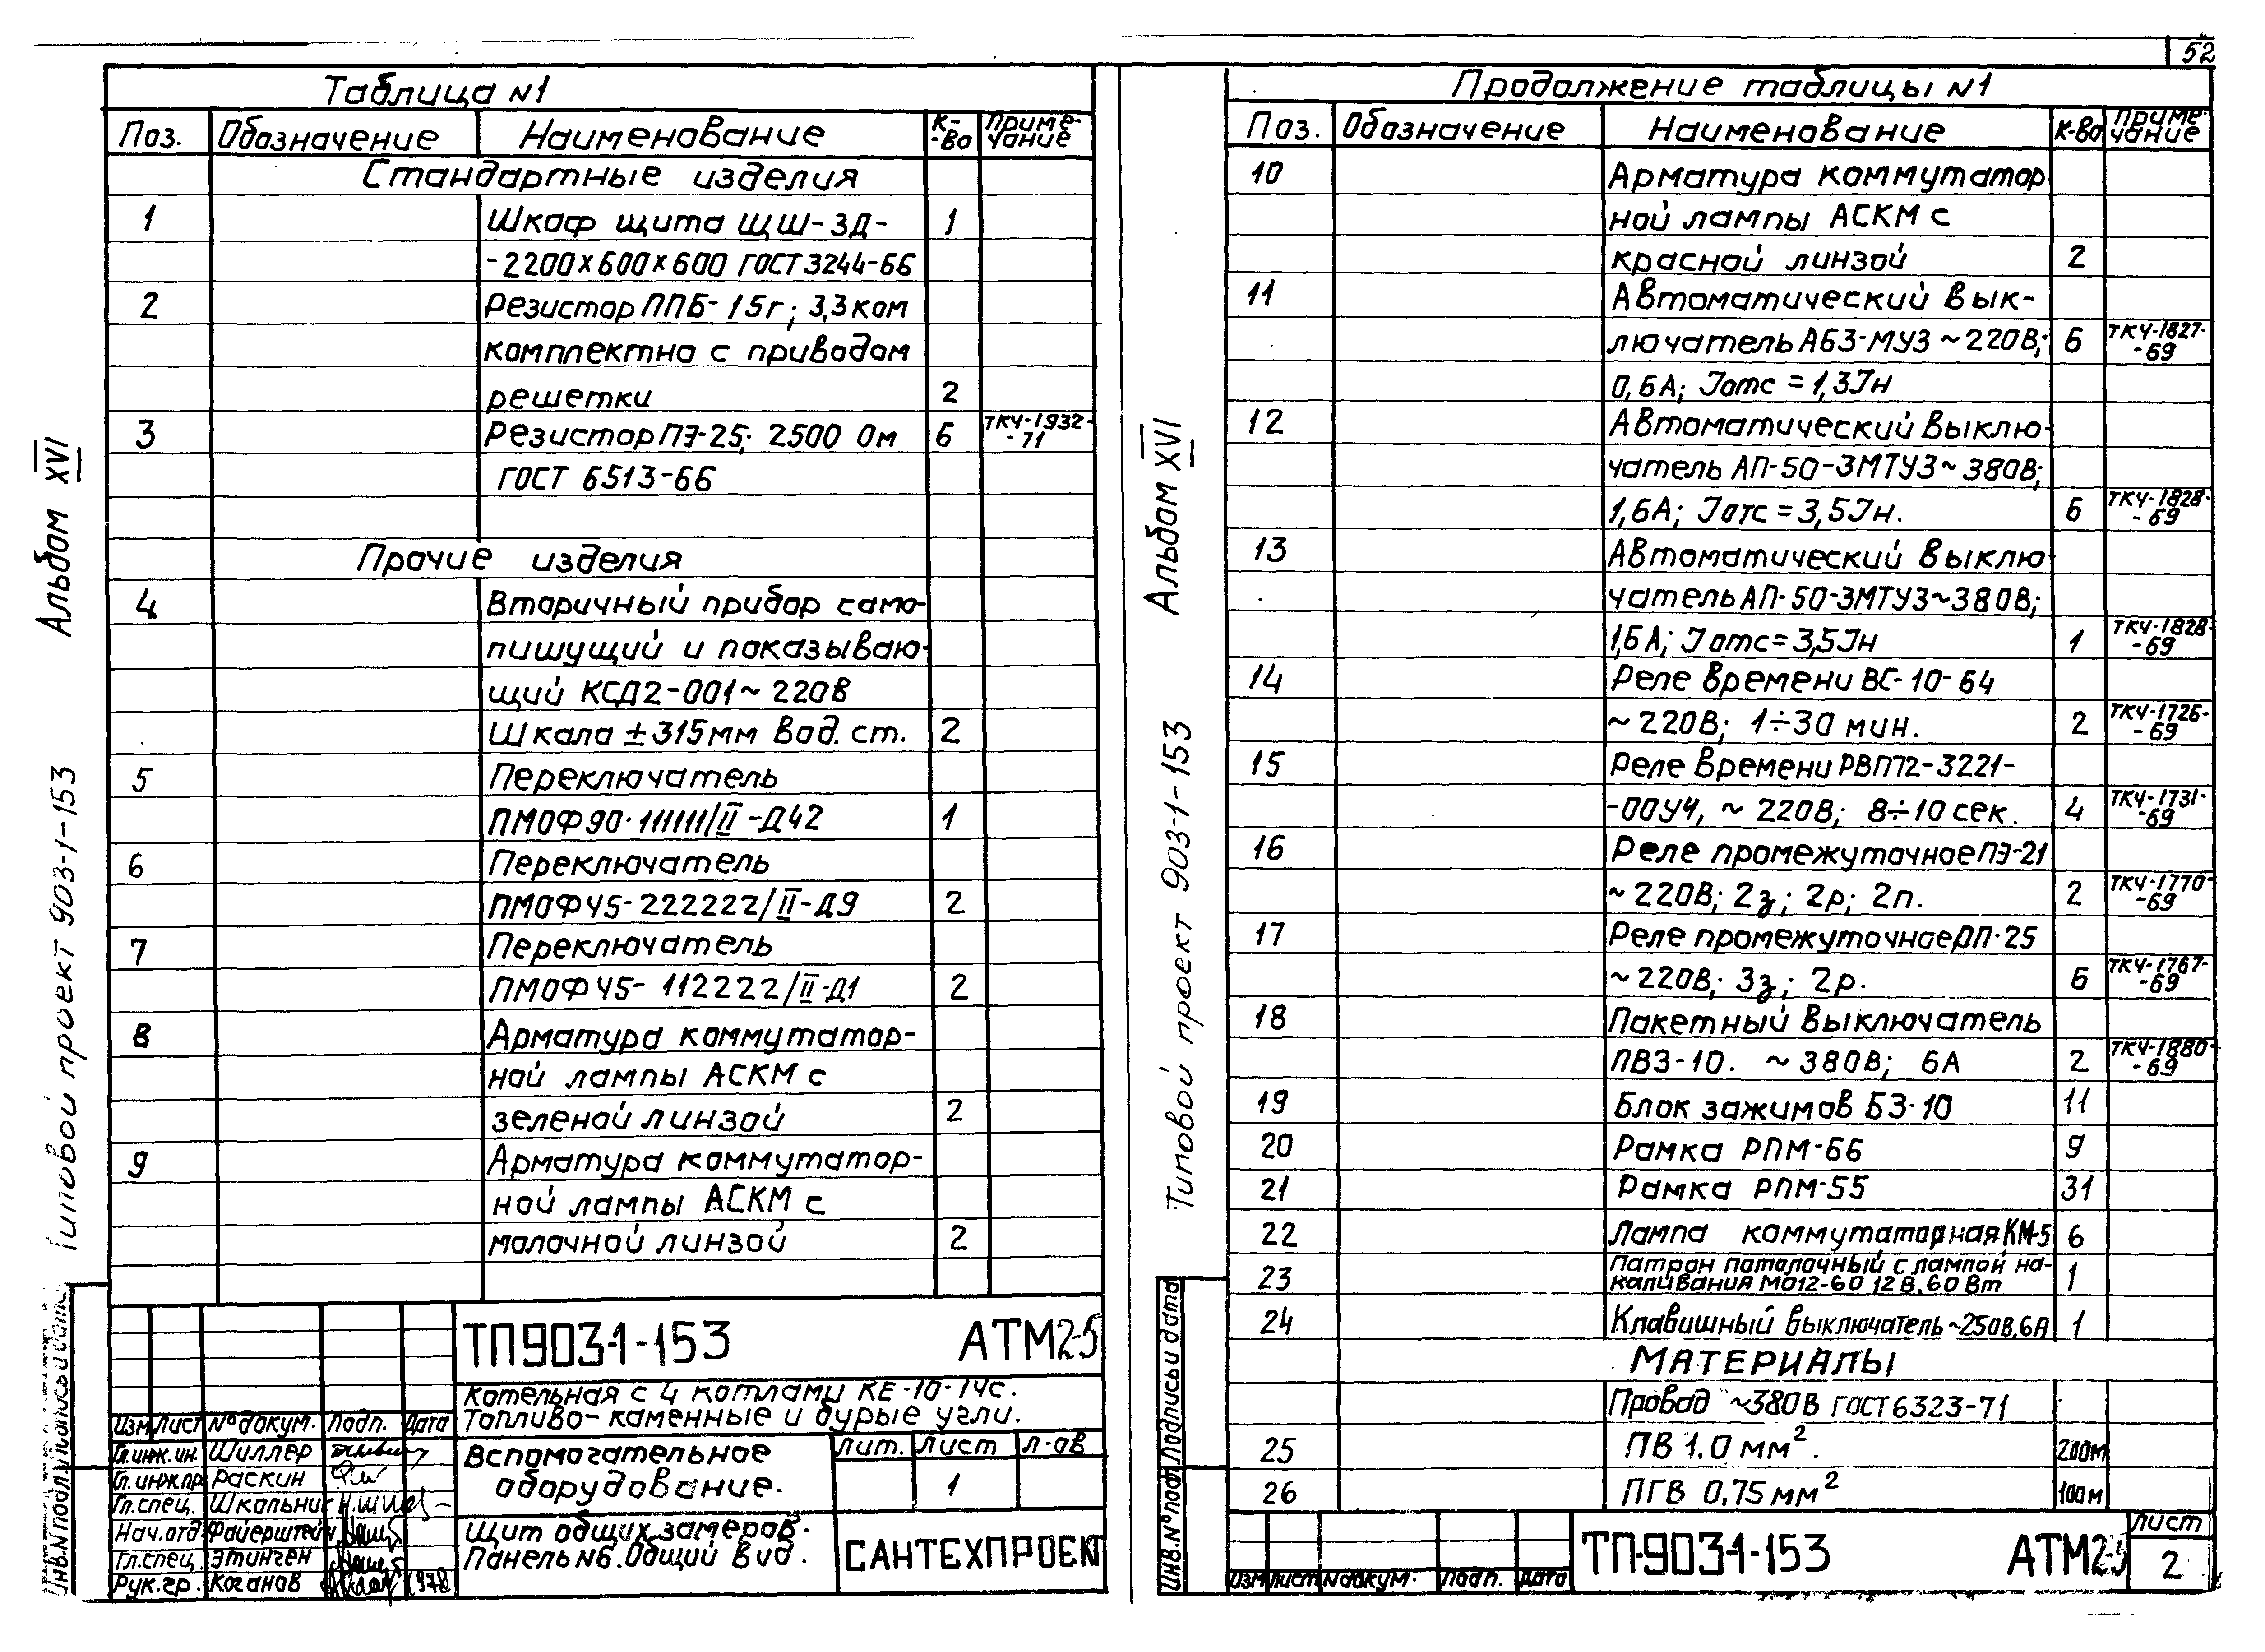 52
Таблица N1
Поз. Обозначение Наименование К--во Примечание
Стандартные изделия
1 Шкаф щита ЩШ-ЗД- 1
-2200х600х600 ГОСТ 3244-66
2 Резистор ППБ-15г; 3,3 ком
комплектно с приводом
решетки 2
3 Резистор ПЭ-25; 2500 Ом 6 ТКЧ-1932-
-71
ГОСТ 6513-66
Прочие изделия
4 Вторичный прибор само-
пишущий и показываю-
щий КСД2-001~ 220В
Шкала ±315мм вод. ст. 2
5 Переключатель
ПМОФ90-111111/II-Д42 1
6 Переключатель
ПМОФ45-222222/II-Д9 2
7 Переключатель
ПМОФ45-112222/II-Д1 2
8 Арматура коммутатор-
ной лампы АСКМ с
зеленой линзой 2
9 Арматура коммутатор-
ной лампы АСКМ с
молочной линзой 2
ТП903-1-153 АТМ2-5
Котельная с 4 котлами КЕ-10-14с.
Топливо-каменные и бурые угли.
Изм Лист № докум. Подп. Дата
Гл.инж.ин. Шиллер
Гл.инж.пр Раскин
Гл.спец. Школьник
Нач.отд Файерштейн
Гл.спец. Этинген
Рук.гр. Коганов 1978
Вспомогательное
оборудование.
Лит. Лист Л-ов
1
Щит общих замеров.
Панель N6. Общий вид.
САНТЕХПРОЕКТ
Альбом XVI
Типовой проект 903-1-153
Инв.N подл. Подпись и дата
Продолжение таблицы N1
Поз. Обозначение Наименование К-во Примечание
10 Арматура коммутатор-
ной лампы АСКМ с
красной линзой 2
11 Автоматический вык-
лючатель АБ3-МУ3 ~220В; 6 ТКЧ-1827-
-69
0,6А; Jотс = 1,3Jн
12 Автоматический выклю-
чатель АП-50-3МТУ3~380В;
1,6А; Jотс = 3,5Jн. 6 ТКЧ-1828-
-69
13 Автоматический выклю-
чатель АП-50-3МТУ3~380В;
1,6А; Jотс=3,5Jн 1 ТКЧ-1828-
-69
14 Реле времени ВС-10-64
~220В; 1÷30 мин. 2 ТКЧ-1726-
-69
15 Реле времени РВП72-3221-
-00У4, ~ 220В; 8÷10 сек. 4 ТКЧ-1731-
-69
16 Реле промежуточное ПЭ-21
~220В; 2з; 2р; 2п. 2 ТКЧ-1770-
-69
17 Реле промежуточное РП-25
~220В; 3з; 2р. 6 ТКЧ-1767-
-69
18 Пакетный выключатель
ПВ3-10. ~380В; 6А 2 ТКЧ-1880-
-69
19 Блок зажимов БЗ-10 11
20 Рамка РПМ-66 9
21 Рамка РПМ-55 31
22 Лампа коммутаторная КМ-5 6
23 Патрон потолочный с лампой на-
каливания МО12-60 12В,60Вт 1
24 Клавишный выключатель ~250В,6А 1
МАТЕРИАЛЫ
Провод ~380В ГОСТ 6323-71
25 ПВ 1.0 мм². 200м
26 ПГВ 0,75 мм² 100м
Изм Лист N докум. Подп. Дата
ТП-903-1-153 АТМ2-5
Лист
2
Альбом XVI
Типовой проект 903-1-153
Инв.№ подл. Подпись и дата